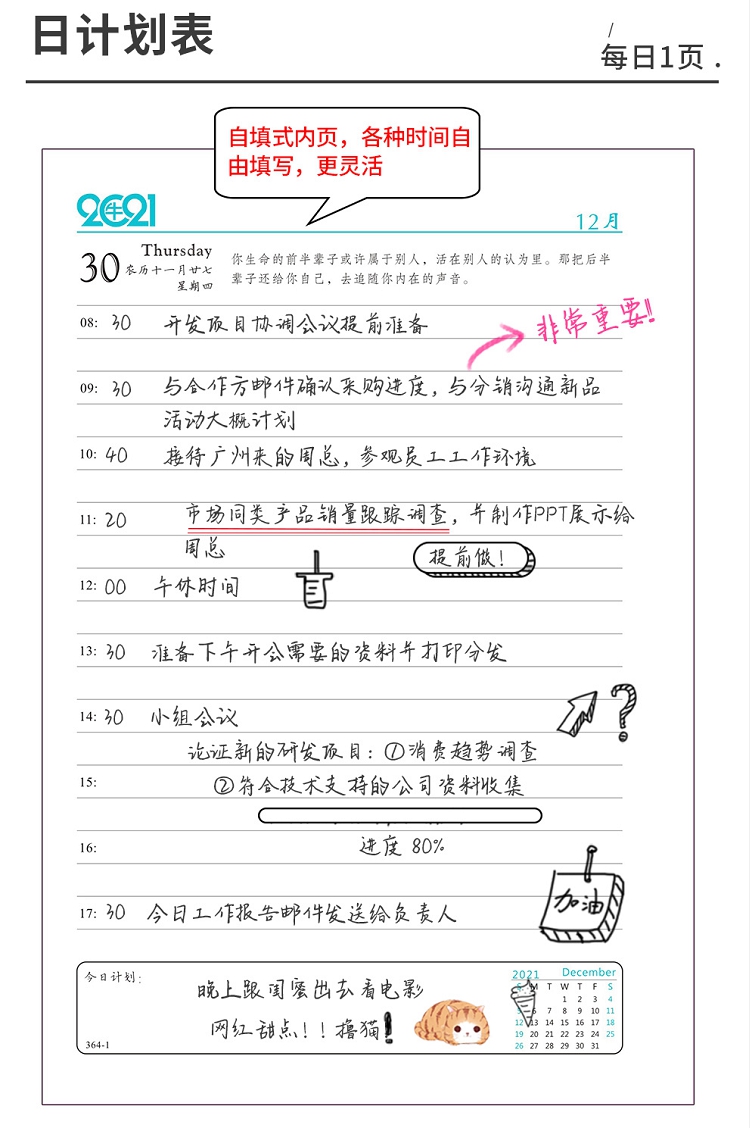 日计划表
/
每日1页 .
自填式内页，各种时间自
由填写，更灵活
2021
牛
12月
30
Thursday
农历十一月廿七
星期四
你生命的前半辈子或许属于别人，活在别人的认为里。那把后半
辈子还给你自己，去追随你内在的声音。
08: 30 开发项目协调会议提前准备
非常重要!!
09: 30 与合作方邮件确认采购进度，与分销沟通新品
活动大概计划
10: 40 接待广州来的周总，参观员工工作环境
11: 20 市场同类产品销量跟踪调查，并制作PPT展示给
周总
提前做！
12: 00 午休时间
13: 30 准备下午开会需要的资料并打印分发
14: 30 小组会议
?
论证新的研发项目：①消费趋势调查
15: ②符合技术支持的公司资料收集
16: 进度 80%
加油
17: 30 今日工作报告邮件发送给负责人
今日计划:
晚上跟闺蜜出去看电影
网红甜点！！撸猫!
364-1
2021 December
S M T W T F S
1 2 3 4
5 6 7 8 9 10 11
12 13 14 15 16 17 18
19 20 21 22 23 24 25
26 27 28 29 30 31